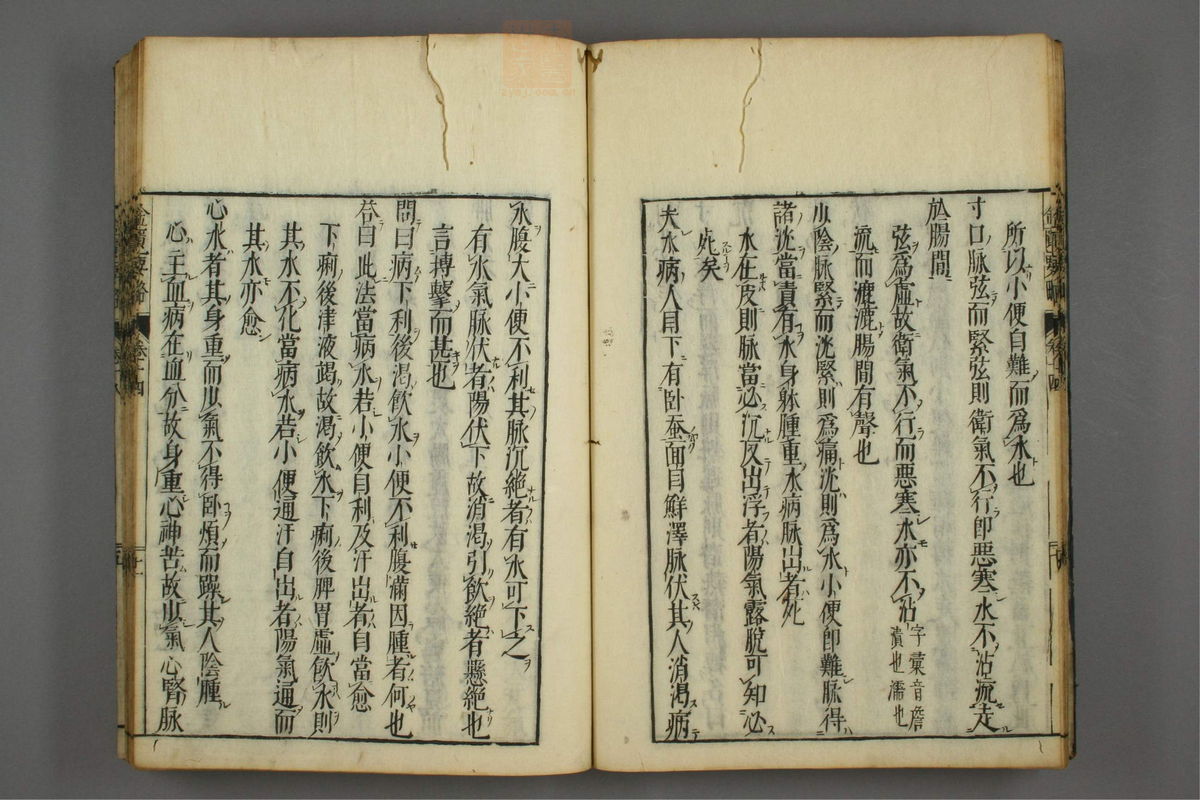 所以小便自難而爲水也
寸口脉弦而緊弦則衛氣不行卽惡寒水不沾流走
於腸間
弦爲虛故衛氣不行而惡寒水亦不沾字彙音詹漬也濡也
流而漉漉腸間有聲也
少陰脉緊而沈緊則爲痛沈則爲水小便卽難脉得
諸沈當責有水身躰腫重水病脉出者死
水在皮則脉當必沉反出浮者陽氣露脫可知必
死矣
夫水病人目下有卧蚕面目鮮澤脉伏其人消渇病
水腹大小便不利其脉沉絶者有水可下之
有水氣脉伏者陽伏下故消渇引飮絶者懸絶也
言搏擊而甚也
問曰病下利後渇飮水小便不利腹滿因腫者何也
荅曰此法當病水若小便自利及汗出者自當愈
下痢後津液竭故渇飮水下痢後脾胃虛飮水則
其水不化當病水若小便通汗自出者陽氣通而
其水亦愈
心水者其身重而少氣不得卧煩而躁其人陰腫
心主血病在血分故身重心神苦故少氣心腎脉